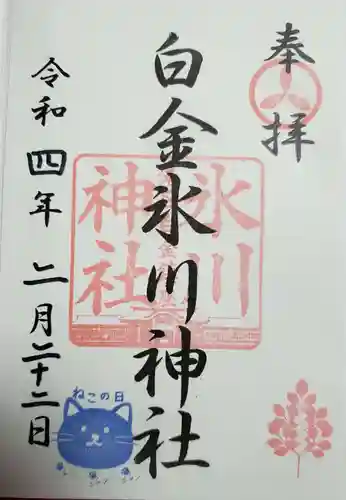 奉拝
白金氷川神社
氷川
神社
令和四年二月二十二日
ねこの日